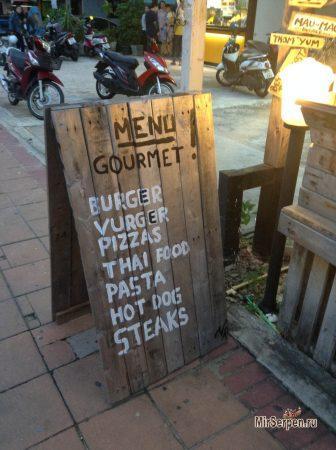 MENU
GOURMET!
BURGER
VURGER
PIZZAS
THAI FOOD
PASTA
HOT DOG
STEAKS
THOM YUM
MirSerpen.ru